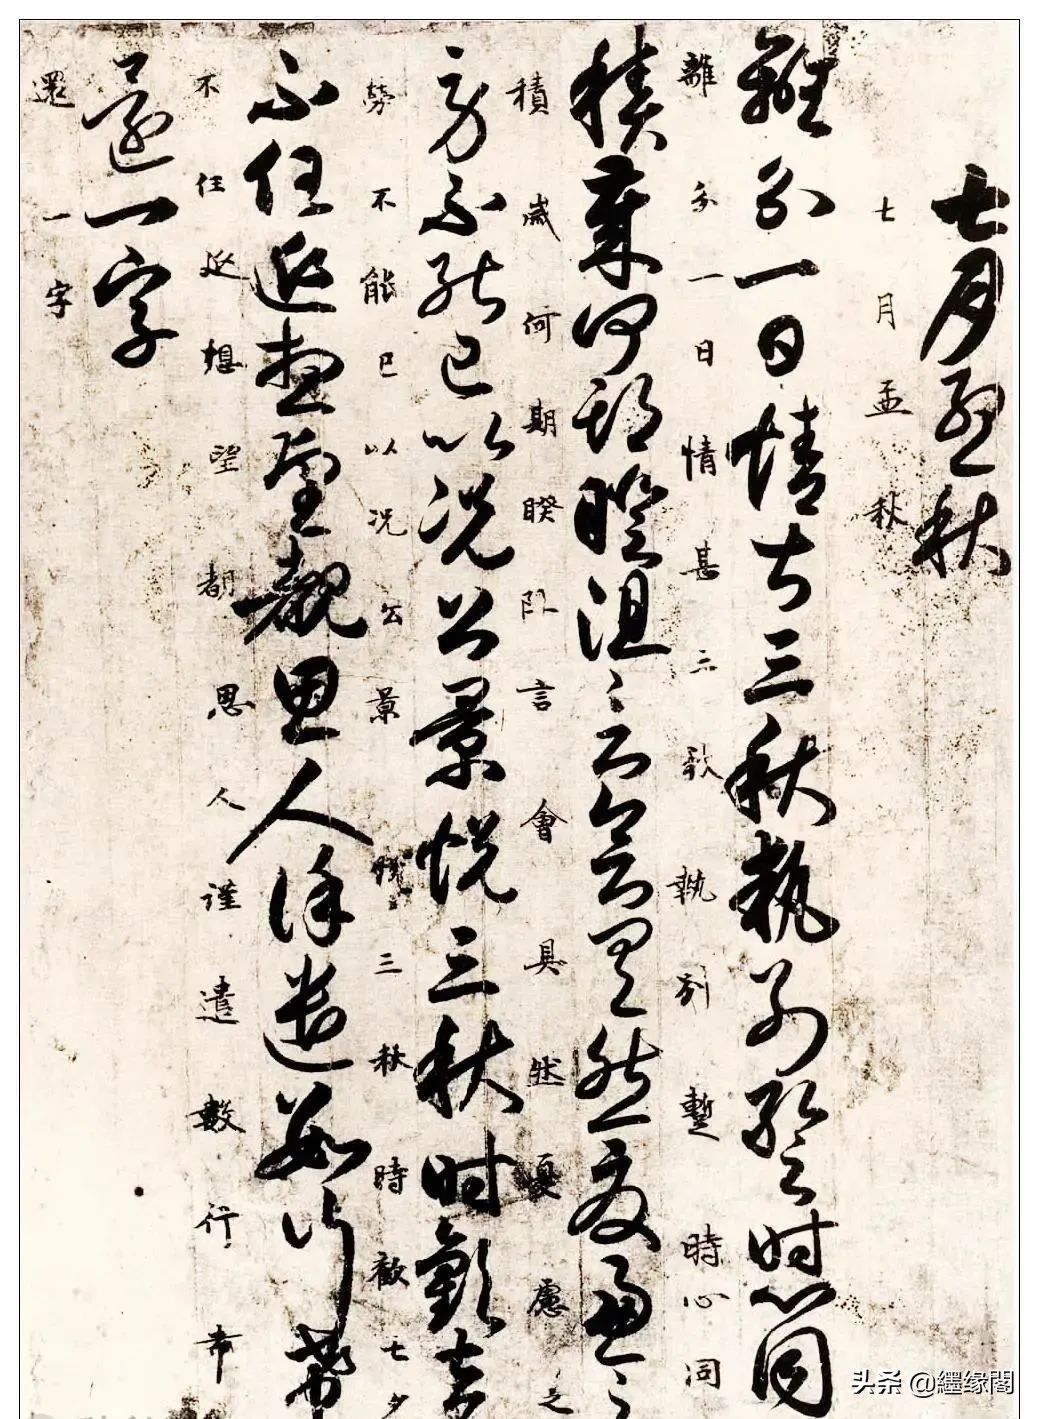 七月孟秋
七月孟秋
離分一日情甚三秋執別暫時心同
離分一日情甚三秋執別暫時心同
積歲何期睽阻之言會具然憂慮之
積歲何期睽卧言會具然憂慮之
勞不能已以況公景悅三秋時歡七
勞不能已以況公景三秋時歡七夕
不任延想望覩思人謹遣數行希
不任延想望都思人謹遣數行希
還一字
還一字
头条 @纆缘閣